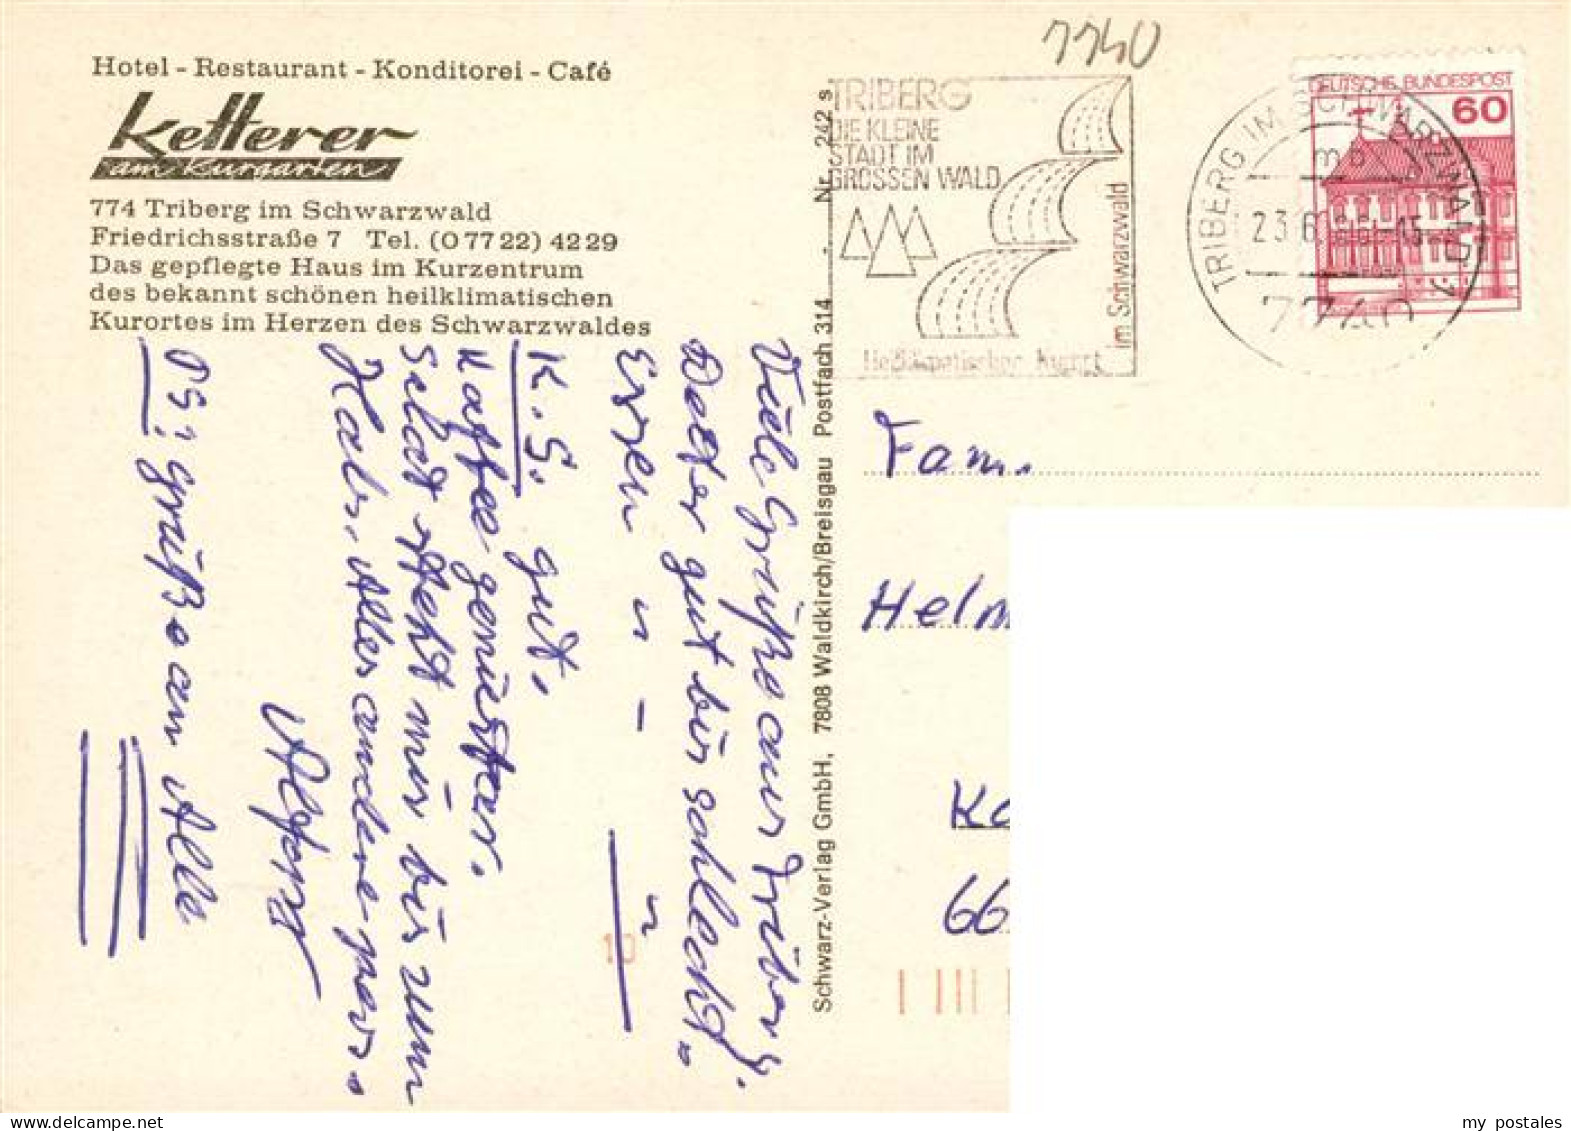 Hotel - Restaurant - Konditorei - Café
Ketterer
am Kurgarten
774 Triberg im Schwarzwald
Friedrichsstraße 7 Tel. (0 77 22) 42 29
Das gepflegte Haus im Kurzentrum
des bekannt schönen heilklimatischen
Kurortes im Herzen des Schwarzwaldes
Viele Grüße aus Triberg.
Wetter gut bis schlecht.
Essen " - "
K. S. gut.
Kaffee genießbar.
bis zum
Hals. Alles andere
PS: Grüße an Alle
Schwarz-Verlag GmbH, 7808 Waldkirch/Breisgau Postfach 314 . Nr. 242 s
7740
TRIBERG
DIE KLEINE
STADT IM
GROSSEN WALD
im Schwarzwald
Heilklimatischer Kurort
TRIBERG IM SCHWARZWALD 1
mb
23.6.
-15
7740
DEUTSCHE BUNDESPOST
60
Fam.
Helm
Ka
66
10
my postales